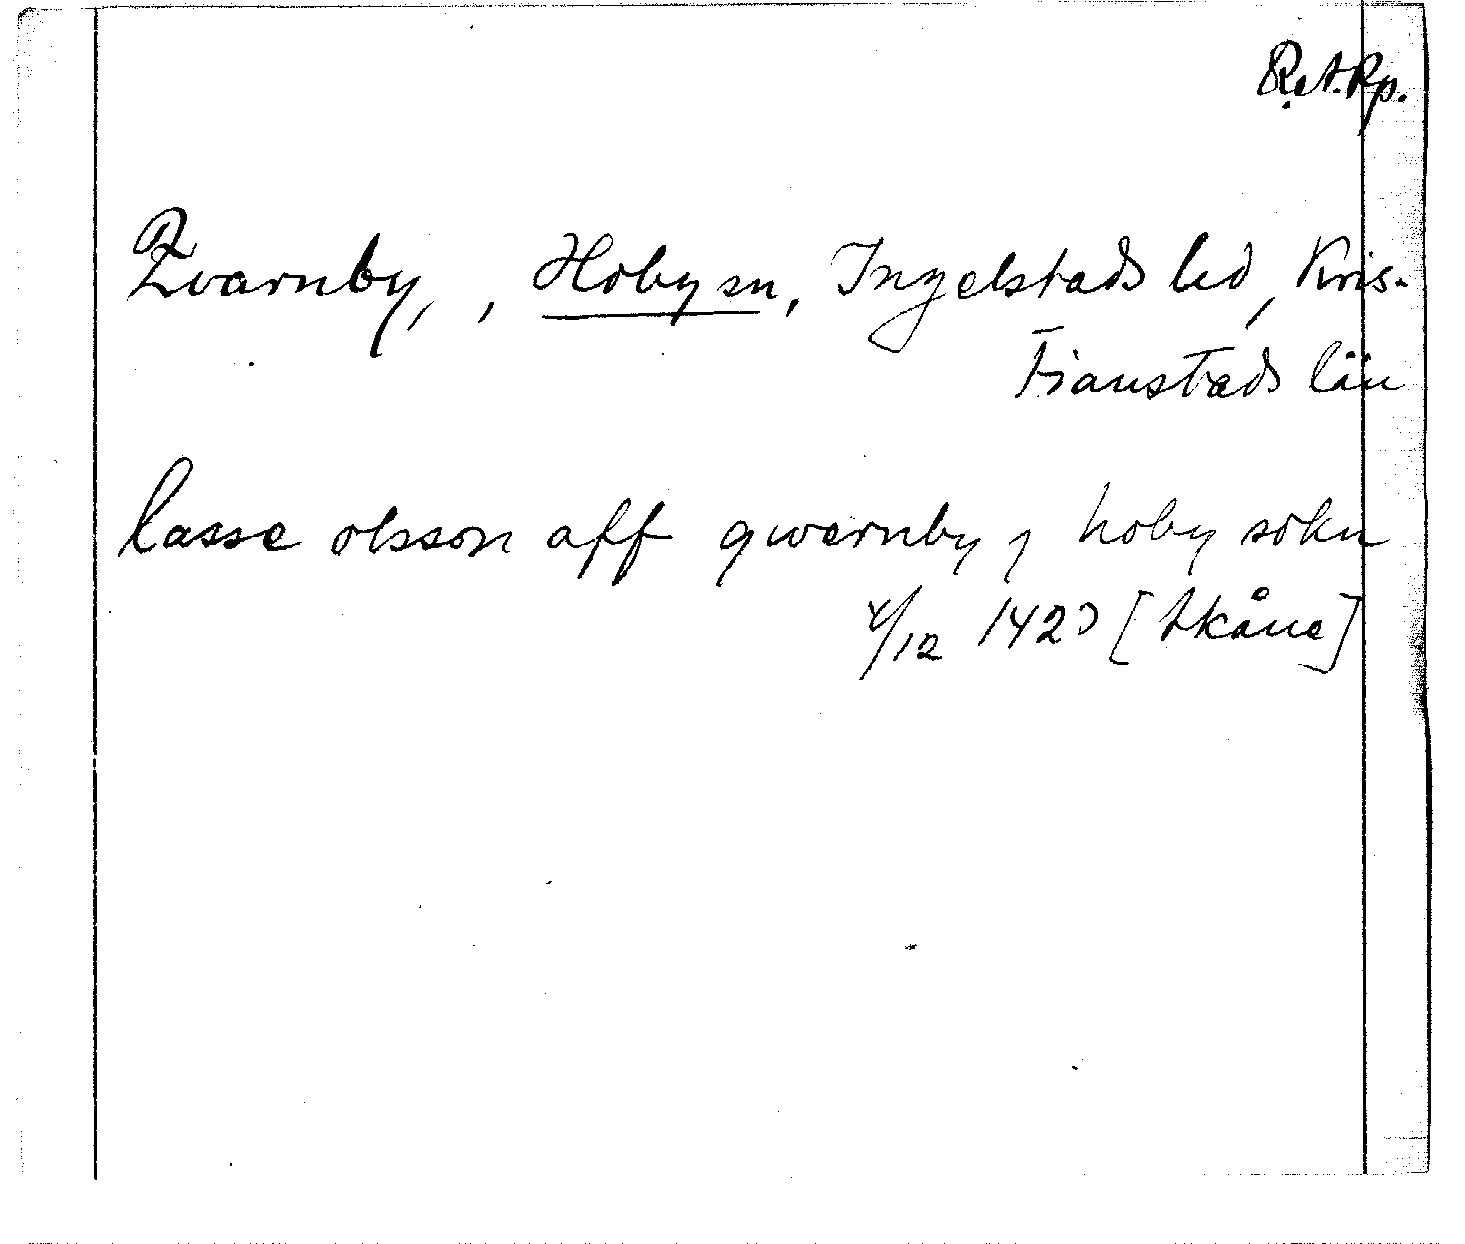 R.A.Rp.
Qvarnby, , Hoby sn, Ingelstads hd, Kris-
tianstads län
lasse olsson aff qwernby j hoby sokn
4/12 1423 [Skåne]